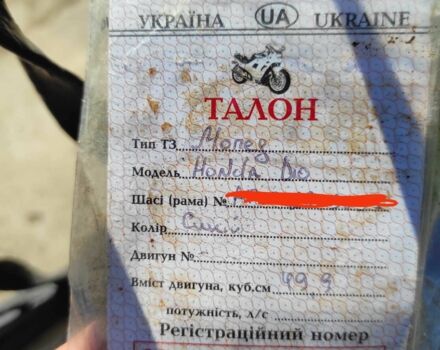 УКРАЇНА UA UKRAINE
ТАЛОН
Тип ТЗ Мопед
Модель Honda Dio
Шасі (рама) №
Колір Синій
Двигун №
Вміст двигуна, куб.см 49,9
потужність, л/с
Регістраційний номер